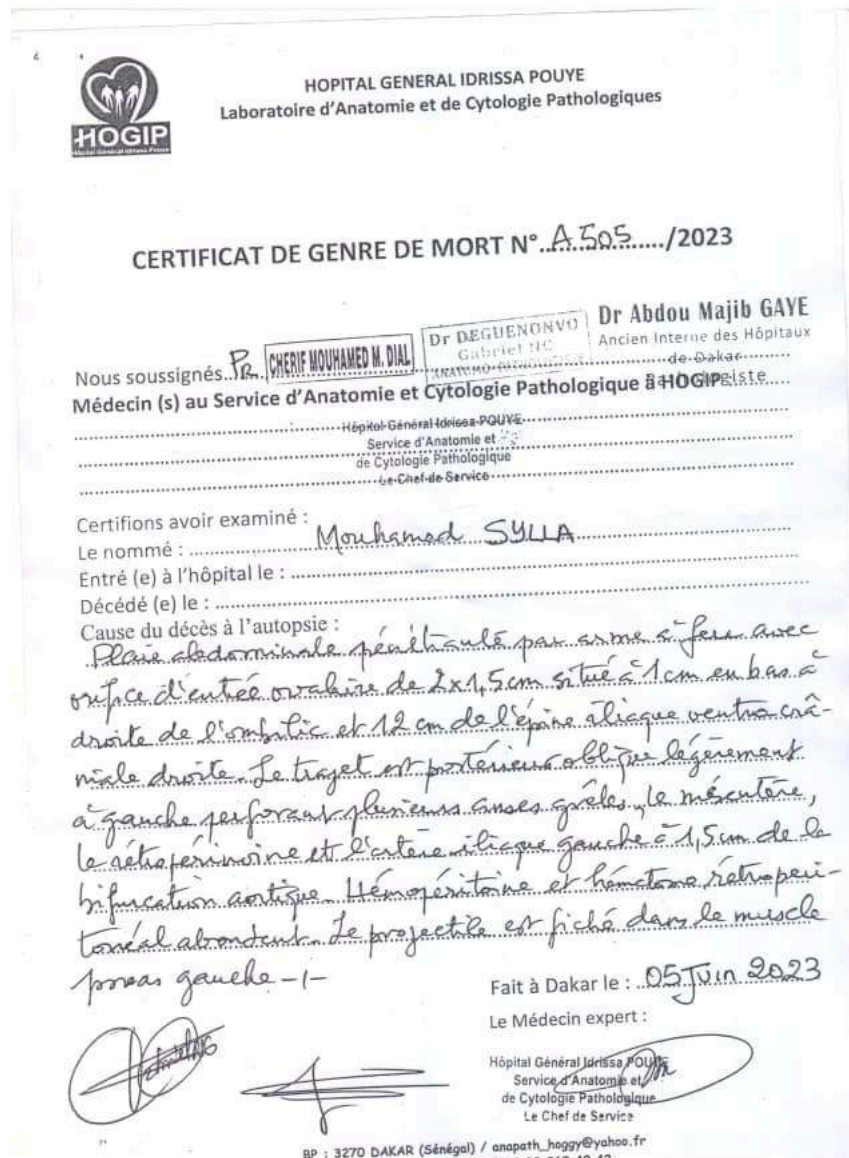 HOPITAL GENERAL IDRISSA POUYE
Laboratoire d'Anatomie et de Cytologie Pathologiques
HOGIP
Hôpital Général Idrissa Pouye
CERTIFICAT DE GENRE DE MORT N° A505/2023
Nous soussignés Pr CHERIF MOUHAMED M. DIAL
Dr DEGUENONVO
Gabriel NC
Dr Abdou Majib GAYE
Ancien Interne des Hôpitaux
de Dakar
Médecin (s) au Service d'Anatomie et Cytologie Pathologique à HOGIP
Hôpital Général Idrissa POUYE
Service d'Anatomie et
de Cytologie Pathologique
Le Chef de Service
Certifions avoir examiné :
Le nommé : Mouhamed SYLLA
Entré (e) à l'hôpital le :
Décédé (e) le :
Cause du décès à l'autopsie :
Plaie abdominale pénétrante par arme à feu avec
orifice d'entrée ovalaire de 2x1,5cm situé à 1cm en bas à
droite de l'ombilic et 12 cm de l'épine iliaque ventro crâ-
niale droite. Le trajet est postérieur oblique légèrement
à gauche perforant plusieurs anses grêles, le mésentère,
le rétropéritoine et l'artère iliaque gauche à 1,5cm de la
bifurcation aortique. Hémopéritoine et hématome rétropéri-
tonéal abondant. Le projectile est fiché dans le muscle
psoas gauche -/-
Fait à Dakar le : 05 Juin 2023
Le Médecin expert :
Hôpital Général Idrissa POUYE
Service d'Anatomie et
de Cytologie Pathologique
Le Chef de Service
BP : 3270 DAKAR (Sénégal) / anapath_hoggy@yahoo.fr